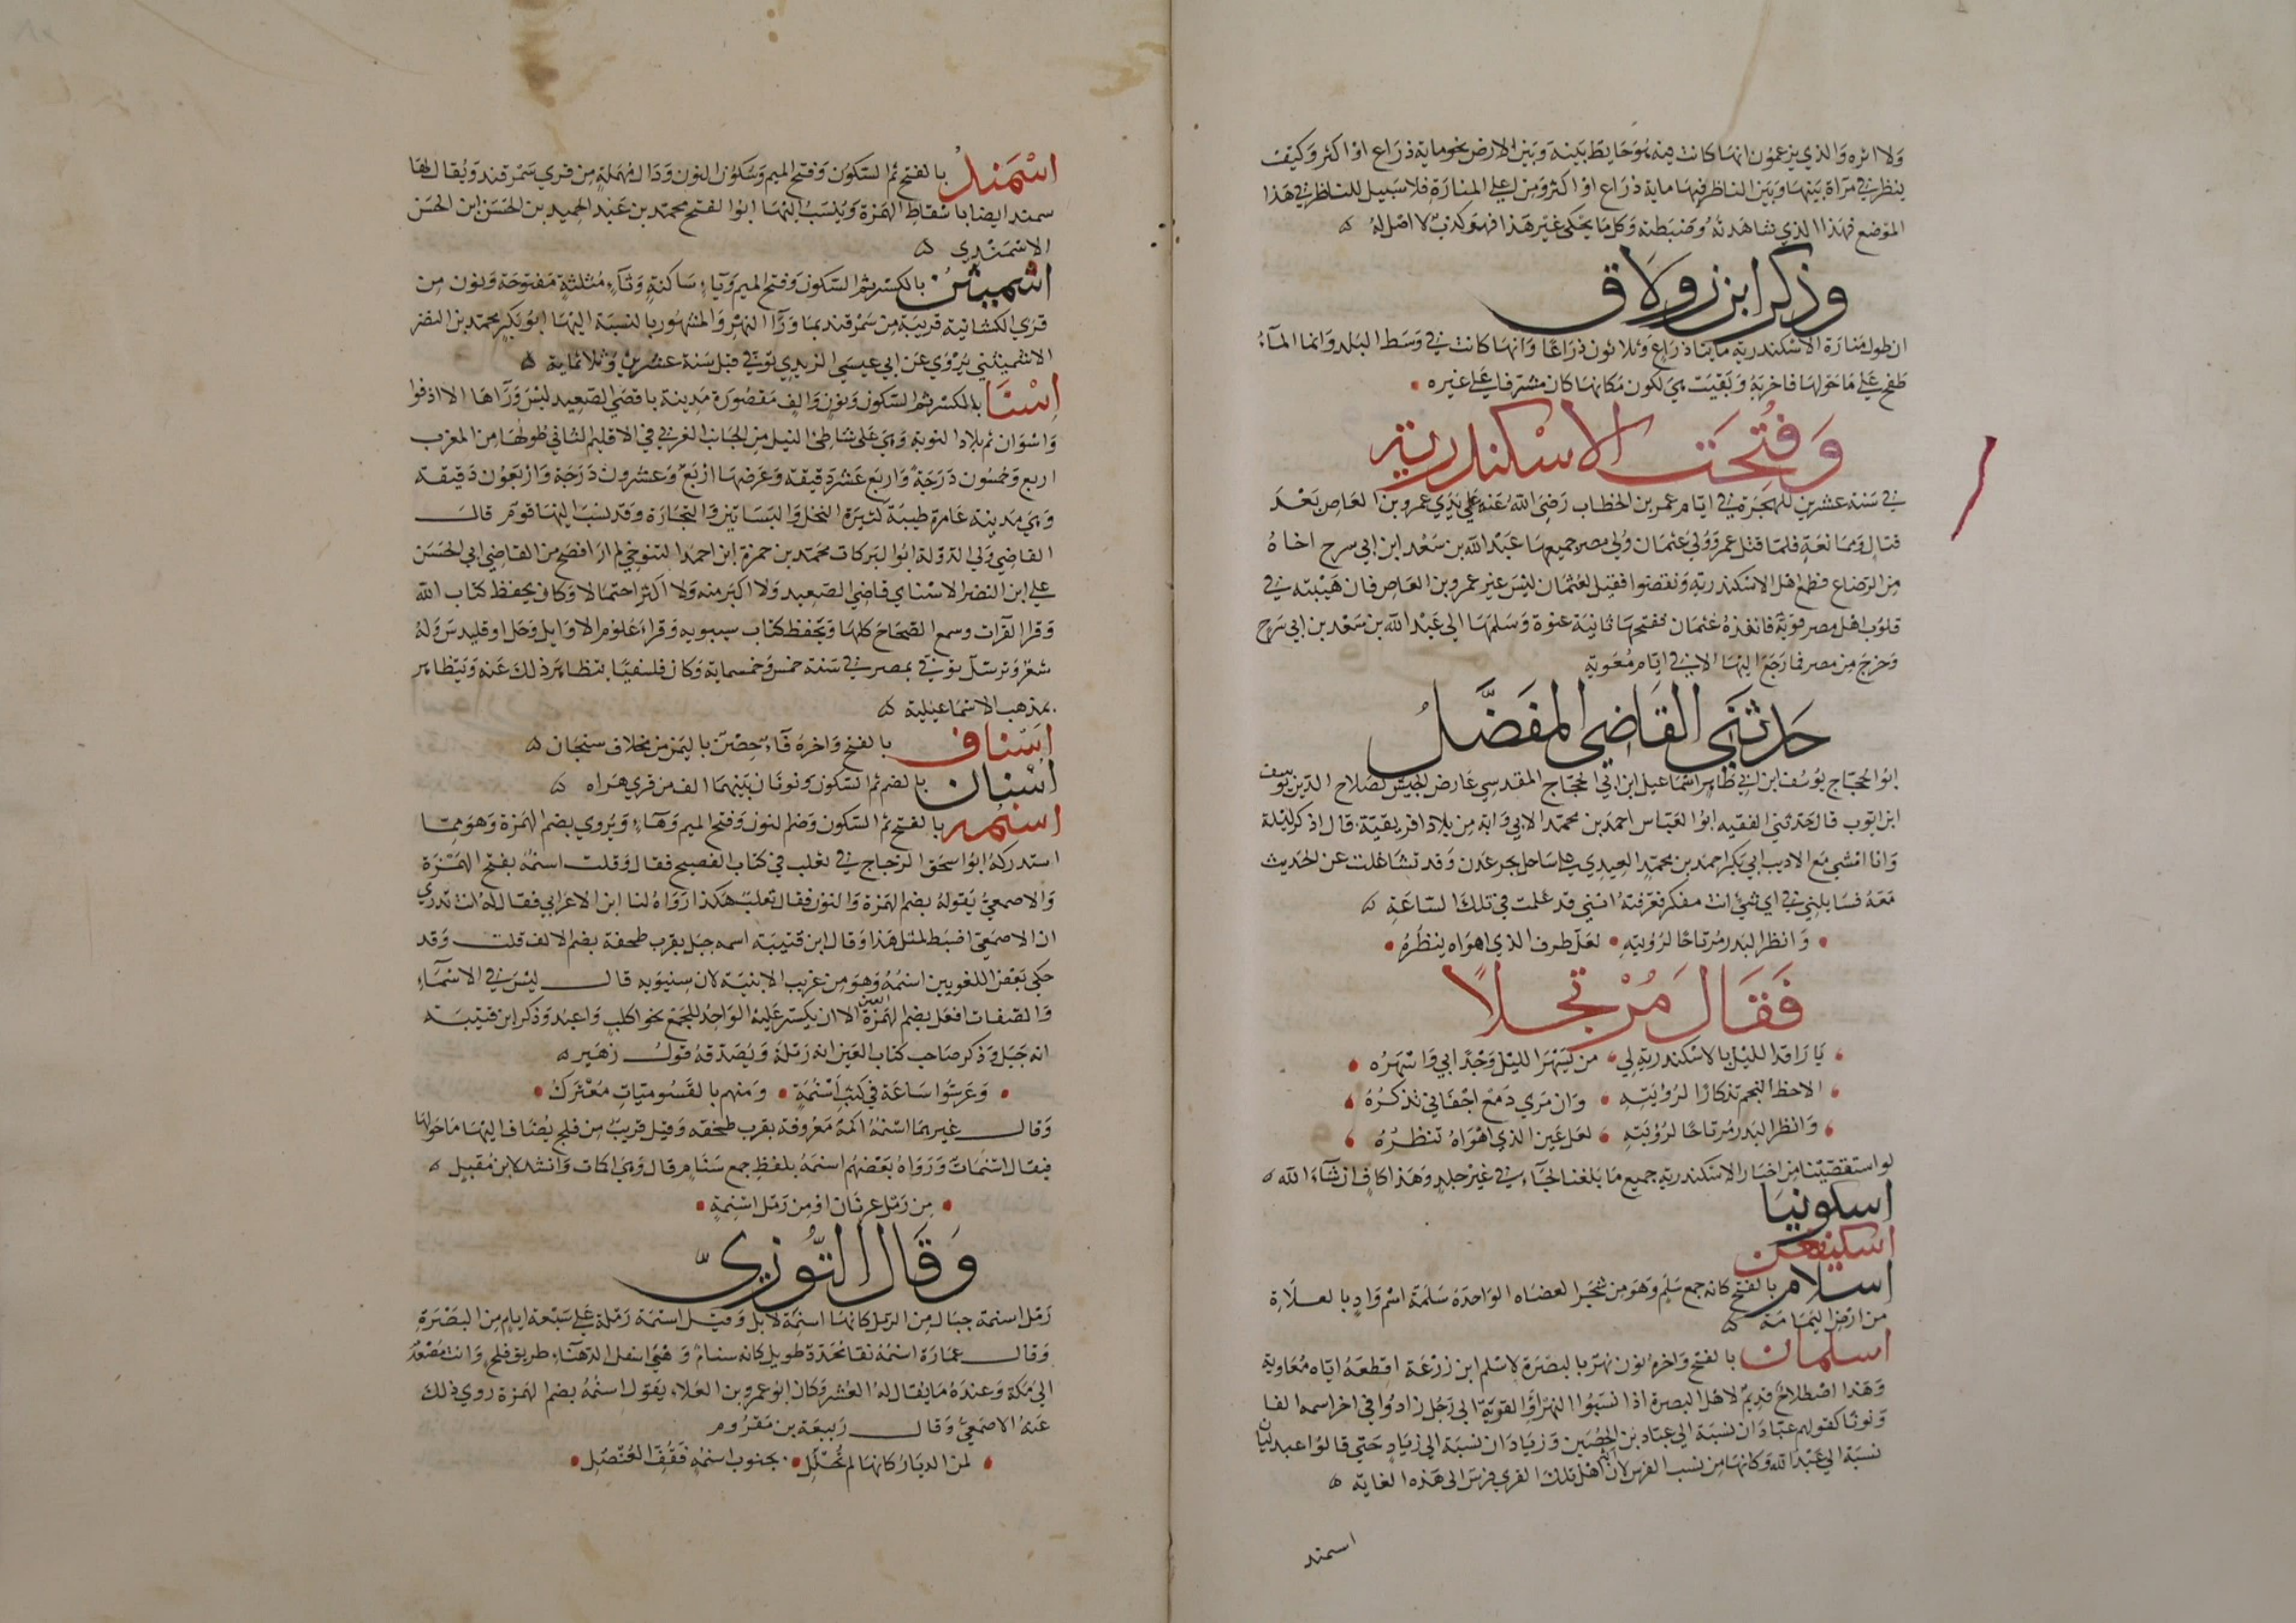 ولا اثره والذي يزعمون انها كانت فيه هو حايط بينه وبين الارض نحو ماية ذراع او اكثر وكيف
ينظر في مرآة بينها وبين الناظر فيها ماية ذراع او اكثر ومن اعلى المنارة فلا سبيل للناظر في هذا
الموضع فهذا الذي شاهدته وضبطته وكل ما يحكى غير هذا فهو كذب لا اصل له
وذكر ابن زولاق
ان طول منارة الاسكندرية مايتا ذراع وثلاثون ذراعا وانها كانت في وسط البلد وانما المآء
طفح على ما حولها فاخربه وبقيت هي لكون مكانها كان مشرفا على غيره
وَفُتِحَت الاسْكندرية
في سنة عشرين للهجرة في ايام عمر بن الخطاب رضي الله عنه على يدي عمرو بن العاص بعد
قتال وممانعة فلما قتل عمر وولي عثمان ولى مصر جميعها عبد الله بن سعد ابن ابي سرح اخاه
من الرضاع فطمع اهل الاسكندرية ونقضوا فقيل لعثمان ليس غير عمرو بن العاص فان هيبته في
قلوب اهل مصر قوية فانفذه عثمان ففتحها ثانية عنوة وسلمها الى عبد الله بن سعد بن ابي سرح
وخرج من مصر فما رجع اليها الا في ايام معوية
حَدثني القاضي المفَضَّلُ
ابو الحجاج يوسف ابن ابي طاهر اسماعيل ابن ابي الحجاج المقدسي عارض الجيش لصلاح الدين يوسف
ابن ايوب قال حدثني الفقيه ابو العباس احمد بن محمد الابي وابه من بلاد افريقية قال اذكر ليلة
وانا امشي مع الاديب ابي بكر احمد بن محمد العيدي على ساحل بحر عدن وقد تشاغلت عن الحديث
معه فسايلني في اي شيء انت مفكر فعرفته انني قد عملت في تلك الساعة
وانظر البدر مرتاحا لرؤيته لعل طرف الذي اهواه ينظره
فَقَالَ مُرْتجلاً
يا راقد الليل بالاسكندرية لي من يسهر الليل وجدا بي واسهره
الاحظ النجم تذكارا لرؤيته وان مرى دمع اجفاني تذكره
وانظر البدر مرتاحا لرؤيته لعل عين الذي اهواه تنظره
لو استقصينا من اخبار الاسكندرية جميع ما بلغنا لجآء في غير جلد وهذا كاف ان شآء الله
اسكونيا
اسلام بالفتح كانه جمع سلم وهو من شجر العضاه الواحدة سلمة اسم واد بالعلاة
من ارض اليمامة
اسلمان بالفتح واخره نون نهر بالبصرة لاسلم ابن زرعة اقطعه اياه معاوية
وهذا اصطلاح قديم لاهل البصرة اذا نسبوا النهر او القرية الى رجل زادوا في اخر اسمه الفا
ونونا كقولهم عبادان نسبة الى عباد بن الحصين وزيادان نسبة الى زياد حتى قالوا عبدلليان
نسبة الى عبد الله وكانها من نسب الفرس لان اهل تلك القرى فرس الى هذه الغاية
اسمند
اسْمَند بالفتح ثم السكون وفتح الميم وسكون النون ودال مهملة من قرى سمرقند ويقال لها
سمند ايضا باسقاط الهمزة وينسب اليها ابو الفتح محمد بن عبد الحميد بن الحسن ابن الحسن
الاسمندي
اسميثن بالكسر ثم السكون وفتح الميم ويآء ساكنة وثآء مثلثة مفتوحة ونون من
قرى الكشانية قريبة من سمرقند بما ورآ النهر والمشهور بالنسبة اليها ابو بكر محمد بن النضر
الاسميثني يروي عن ابي عيسى الترمذي توفي قبل سنة عشرين وثلاثماية
اِسْنَا بالكسر ثم السكون ونون والف مقصورة مدينة باقصى الصعيد ليس ورآها الا ادفوا
واسوان ثم بلاد النوبة وهي على شاطئ النيل من الجانب الغربي في الاقليم الثاني طولها من المغرب
اربع وخمسون درجة واربع عشرة دقيقة وعرضها اربع وعشرون درجة واربعون دقيقة
وهي مدينة عامرة طيبة كثيرة النخل والبساتين والتجارة وقد نسب اليها قوم قال
القاضي ولي الدولة ابو البركات محمد بن حمزة ابن احمد التنوخي لم ار افصح من القاضي ابي الحسن
علي ابن النضر الاسناي قاضي الصعيد ولا اكبر منه ولا اكثر احتمالا وكان يحفظ كتاب الله
وقرا القرات وسمع الصحاح كلها ويحفظ كتاب سيبويه وقرا علوم الاوايل وحل اوقليدس وله
شعر وترسل توفي بمصر في سنة خمس وخمسماية وكان فلسفيا يتظاهر ذلك عنه ويتظاهر
بمذهب الاسماعيلية
اسناف بالفتح واخره فآء حصن باليمن من مخلاف سنحان
اسنان بالضم ثم السكون ونونان بينهما الف من قرى هراه
اسنمه بالفتح ثم السكون وضم النون وفتح الميم وهآء ويروى بضم الهمزة وهو مما
استدركه ابو اسحق الزجاج في ثعلب في كتاب الفصيح فقال وقلت اسنمه بفتح الهمزة
والاصمعي يقوله بضم الهمزة والنون فقال ثعلب هكذا رواه لنا ابن الاعرابي فقال له انت تدري
ان الاصمعي اضبط لمثل هذا وقال ابن قتيبة اسمه جبل بقرب طخفة بضم الالف قلت وقد
حكى بعض اللغويين اسنمه وهو من غريب الابنية لان سيبويه قال ليس في الاسمآء
والصفات افعل بضم الهمزة الا ان يكسر عليه الواحد للجمع نحو اكلب واعبد وذكر ابن قتيبة
انه جبل وذكر صاحب كتاب العين انه رملة ويصدقه قول زهير
وعرسوا ساعة في كثب اسنمة ومنهم بالقسوميات معترك
وقال غيرهما اسنمه اكمة معروفة بقرب طخفه وقيل قريب من فلج يضاف اليها ما حولها
فيقال اسنمات ورواه بعضهم اسنمه بلفظ جمع سنام قال وهي اكات وانشد لابن مقبل
من رمل عرنان او من رمل اسنمة
وَقَال التَّوّزِيّ
رمل اسنمة جبال من الرمل كانها اسنمة الابل وقيل اسنمة رملة على سبعة ايام من البصرة
وقال عمارة اسنمه نقا محدد طويل كانه سنام وهي اسفل الدهنا على طريق فلج وانت مصعد
الى مكة وعنده ما يقال له العشر وكان ابو عمرو بن العلا يقول اسنمه بضم الهمزة روى ذلك
عنه الاصمعي وقال ربيعة بن مقروم
لمن الديار كانها لم تحلل بجنوب اسنمه فقف العنصل